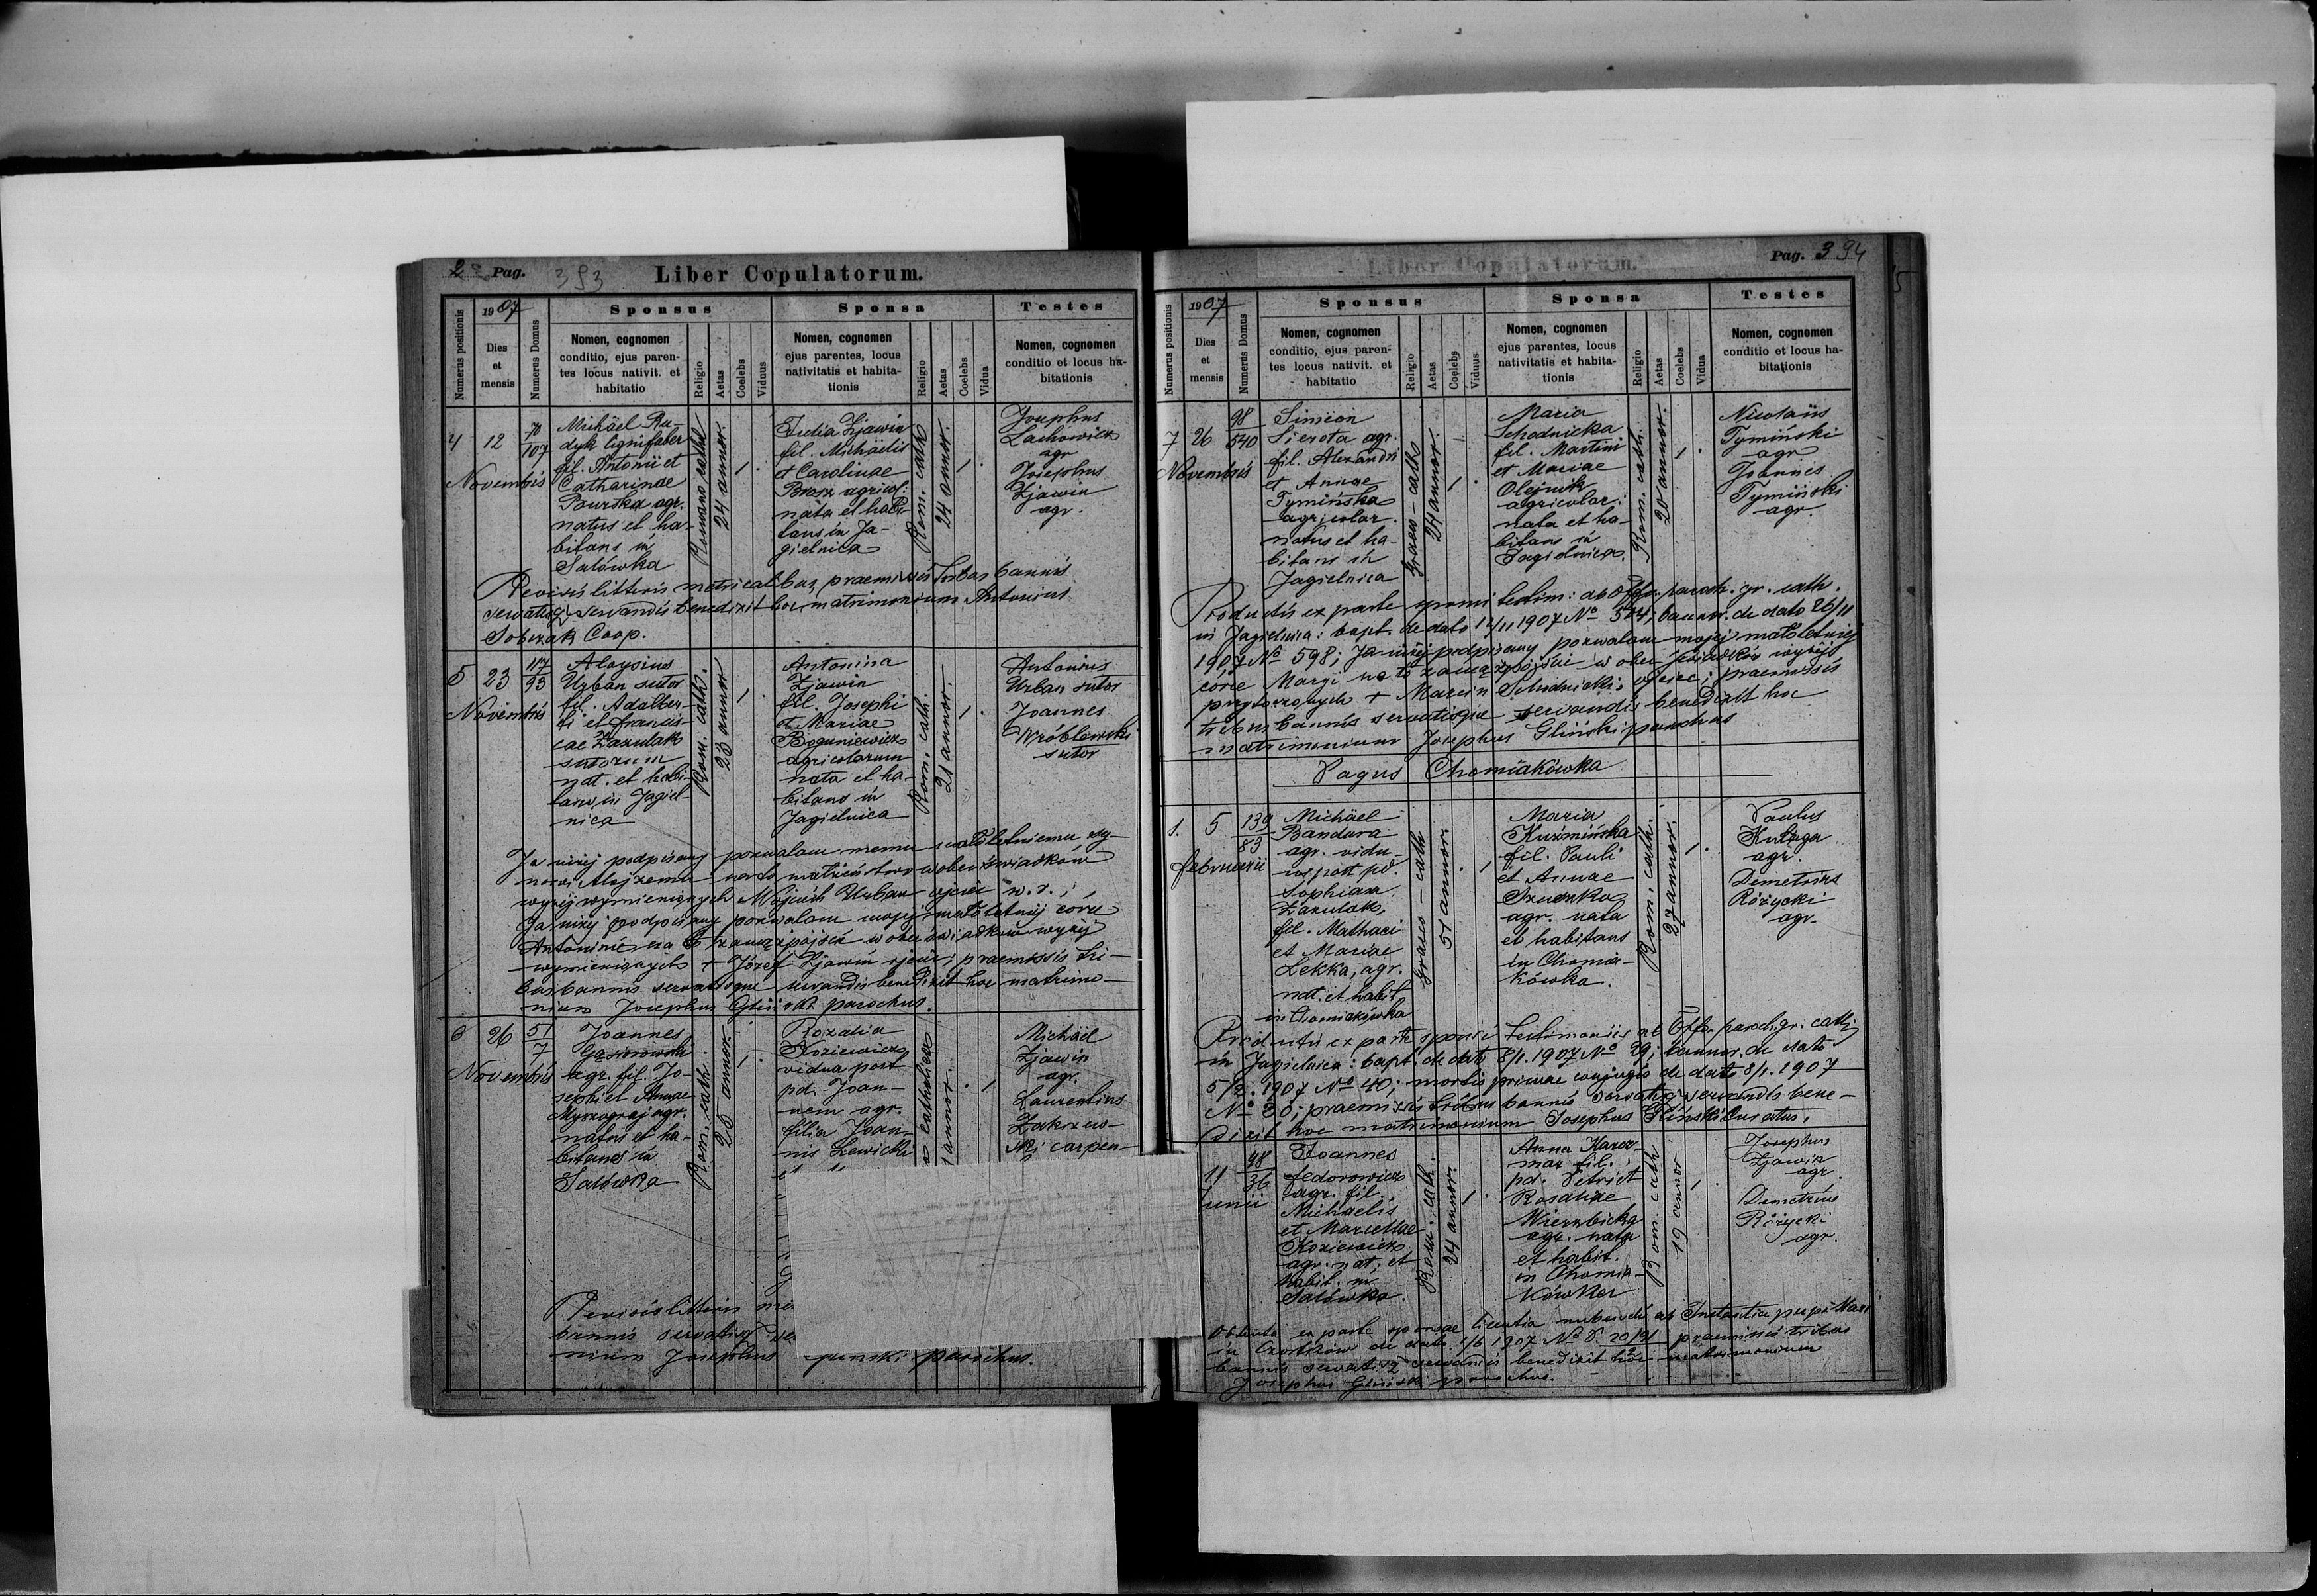 2 Pag. 393 Liber Copulatorum.
Numerus positionis
1907
Dies
et
mensis
Numerus Domus
Sponsus
Nomen, cognomen
conditio, ejus paren-
tes locus nativit. et
habitatio
Religio
Aetas
Coelebs
Viduus
Sponsa
Nomen, cognomen
ejus parentes, locus
nativitatis et habita-
tionis
Religio
Aetas
Coelebs
Vidua
Testes
Nomen, cognomen
conditio et locus ha-
bitationis
4
12
Novembris
70
107
Michäel Ru-
dyk lignifaber
fil. Antonii et
Catharinae
Burska agr.
natus et ha-
bitans in
Salówka
Romano cathol
24 annor.
1
Julia Zjawin
fil. Michäelis
et Carolinae
agricol:
nata et habi-
tans in Ja-
gielnica
Rom. cath
24 annor.
1
Josephus
Lachowicz
agr
Josephus
Zjawin
agr.
Revisis litteris matricalibus, praemissis tribus bannis
servatisq servandis benedixit hoc matrimonium Antonius
Sobczak Coop.
5
23
Novembris
117
93
Aloysius
Urban sutor
fil. Adalber-
ti et Francis-
cae Zazulak
sutorum
nat. et habi-
tans in Jagiel-
nica
Rom. cath.
23 annor
1
Antonina
Zjawin
fil. Josephi
et Mariae
Boguniewicz
agricolarum
nata et ha-
bitans in
Jagielnica
Rom. cath.
21 annor.
1
Antonius
Urban sutor
Joannes
Wróblewski
sutor
Ja niżej podpisany pozwalam memu małoletniemu sy-
nowi Alojzemu na to małżeństwo wobec świadków
wyżej wymienionych Wojciech Urban ojciec w. r.;
Ja niżej podpisany pozwalam mojej małoletniej córce
Antoninie na to zamążpójście wobec świadków wyżej
wymienionych + Józef Zjawin ojciec; praemissis tri-
bus bannis servatisque servandis benedixit hoc matrimo-
nium Josephus Gliński parochus.
6
26
Novembris
51
7
Joannes
Gąsiorowski
agr. fil. Jo-
sephi et Annae
agr.
natus et ha-
bitans in
Salówka
Rom. cath.
25 annor.
1
Rozalia
Koziewicz
vidua post
pd. Joan-
nem agr.
filia Joan-
nis Lewicki
catholica
annor.
1
Michäel
Zjawin
agr.
Laurentius
Zakrzew-
ski carpen-
Revisis litteris
bannis servatisq
nium Josephus
parochus.
Liber Copulatorum.
Pag. 394
Numerus positionis
1907
Dies
et
mensis
Numerus Domus
Sponsus
Nomen, cognomen
conditio, ejus paren-
tes locus nativit. et
habitatio
Religio
Aetas
Coelebs
Viduus
Sponsa
Nomen, cognomen
ejus parentes, locus
nativitatis et habita-
tionis
Religio
Aetas
Coelebs
Vidua
Testes
Nomen, cognomen
conditio et locus ha-
bitationis
7
26
Novembris
98
540
Simeon
Sierota agr.
fil. Alexandri
et Annae
Tymińska
agricolar.
natus et ha-
bitans in
Jagielnica
Graeco-cath
24 annor.
1
Maria
Schodnicka
fil. Martini
et Mariae
Olejnik
agricolar.
nata et ha-
bitans in
Jagielnica.
Rom. cath.
20 annor.
1
Nicolaüs
Tymiński
agr
Joannes
Tymiński
agr.
Productis ex parte sponsi testim: ab Offo. paroch. gr. cath.
in Jagielnica: bapt. de dato 12/11 1907 No 574; bannor. de dato 26/11
1907 No 598; Ja niżej podpisany pozwalam mojej małoletniej
córce Maryi na to zamążpójście w obec świadków wyżej
przytoczonych + Marcin Schodnicki, ojciec; praemissis
tribus bannis servatisque servandis benedixit hoc
matrimonium Josephus Gliński parochus
Pagus Chomiakówka
1.
5
februarii
139
83
Michäel
Bandura
agr. vidu-
us post pd.
Sophiam
Zazulak,
fil. Mathaei
et Mariae
Lekka, agr.
nat. et habit
in Chomiakówka
Graeco-cath
51 annor.
1
Maria
Kuźmińska
fil. Pauli
et Annae
agr. nata
et habitans
in Chomia-
kówka.
Rom. cath.
27 annor.
1
Paulus
Kulega
agr.
Demetrius
Różycki
agr.
Productis ex parte sponsi testimoniis ab Offo. paroch. gr. cath
in Jagielnica: bapt. de dato 8/1. 1907 No 29; bannor. de dato
5/2. 1907 No 40; mortis primae conjugis de dato 8/1. 1907
No 30; praemissis tribus bannis servatisq servandis bene-
dixit hoc matrimonium Josephus Gliński Curatus.
11
Junii
48
36
Joannes
Fedorowicz
agr. fil.
Michaelis
et Marcellae
Koziewicz
agr. nat. et
habit. in
Salówka.
Rom. cath.
24 annor.
1
Anna Karcz-
mar fil.
pd. Petri et
Rosaliae
Wierzbicka
agr. nata
et habit.
in Chomia-
kówka
Rom. cath
19 annor
1
Josephus
Zjawin
agr.
Demetrius
Różycki
agr.
Obtenta ex parte sponsae licentia nubendi ab Instantia pupillari
in Czortków de dato 1/6 1907 No P. 20/91 praemissis tribus
bannis servatisq servandis benedixit hoc matrimonium
Josephus Gliński parochus.